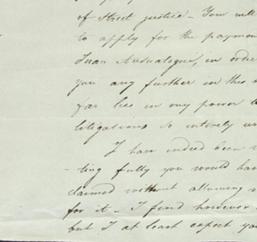 of Strict justice – You will
to apply for the paymen
Juan Andualaque, in orde
you any further in this
far lies in my power
litigations so entirely un
I have indeed been
ting fully you would hav
claimed without allowing
for it – I find however
but I at least expect yo